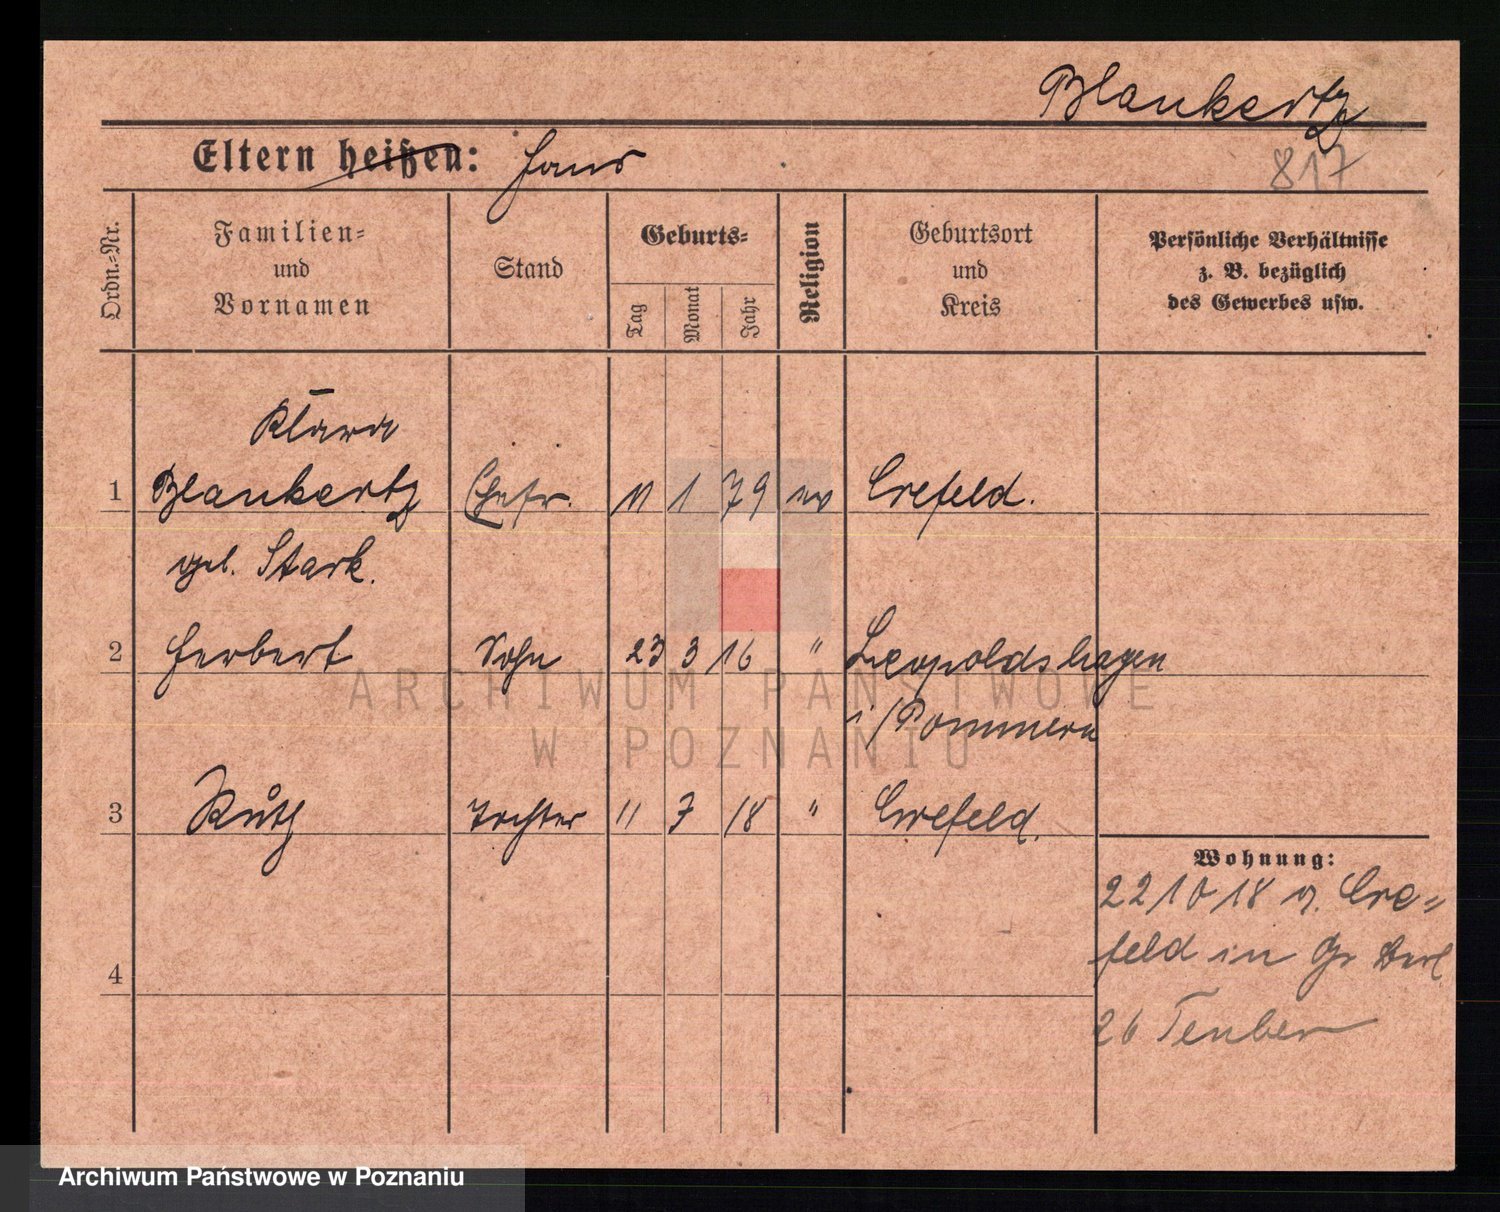 Blankertz
Eltern heißen: Hans
817
Ordn.-Nr.
Familien-
und
Vornamen
Stand
Geburts-
Tag
Monat
Jahr
Religion
Geburtsort
und
Kreis
Persönliche Verhältnisse
z. B. bezüglich
des Gewerbes usw.
Klara
1 Blankertz Ehefr. 11 1 79 ev Crefeld.
geb. Stark.
2 Herbert Sohn 23 3 16 " Leopoldshagen
i/Pommern
3 Ruth Tochter 11 7 18 " Crefeld.
Wohnung:
22 10 18 v. Cre=
feld in Gr
4
26
ARCHIWUM PAŃSTWOWE
W POZNANIU
Archiwum Państwowe w Poznaniu